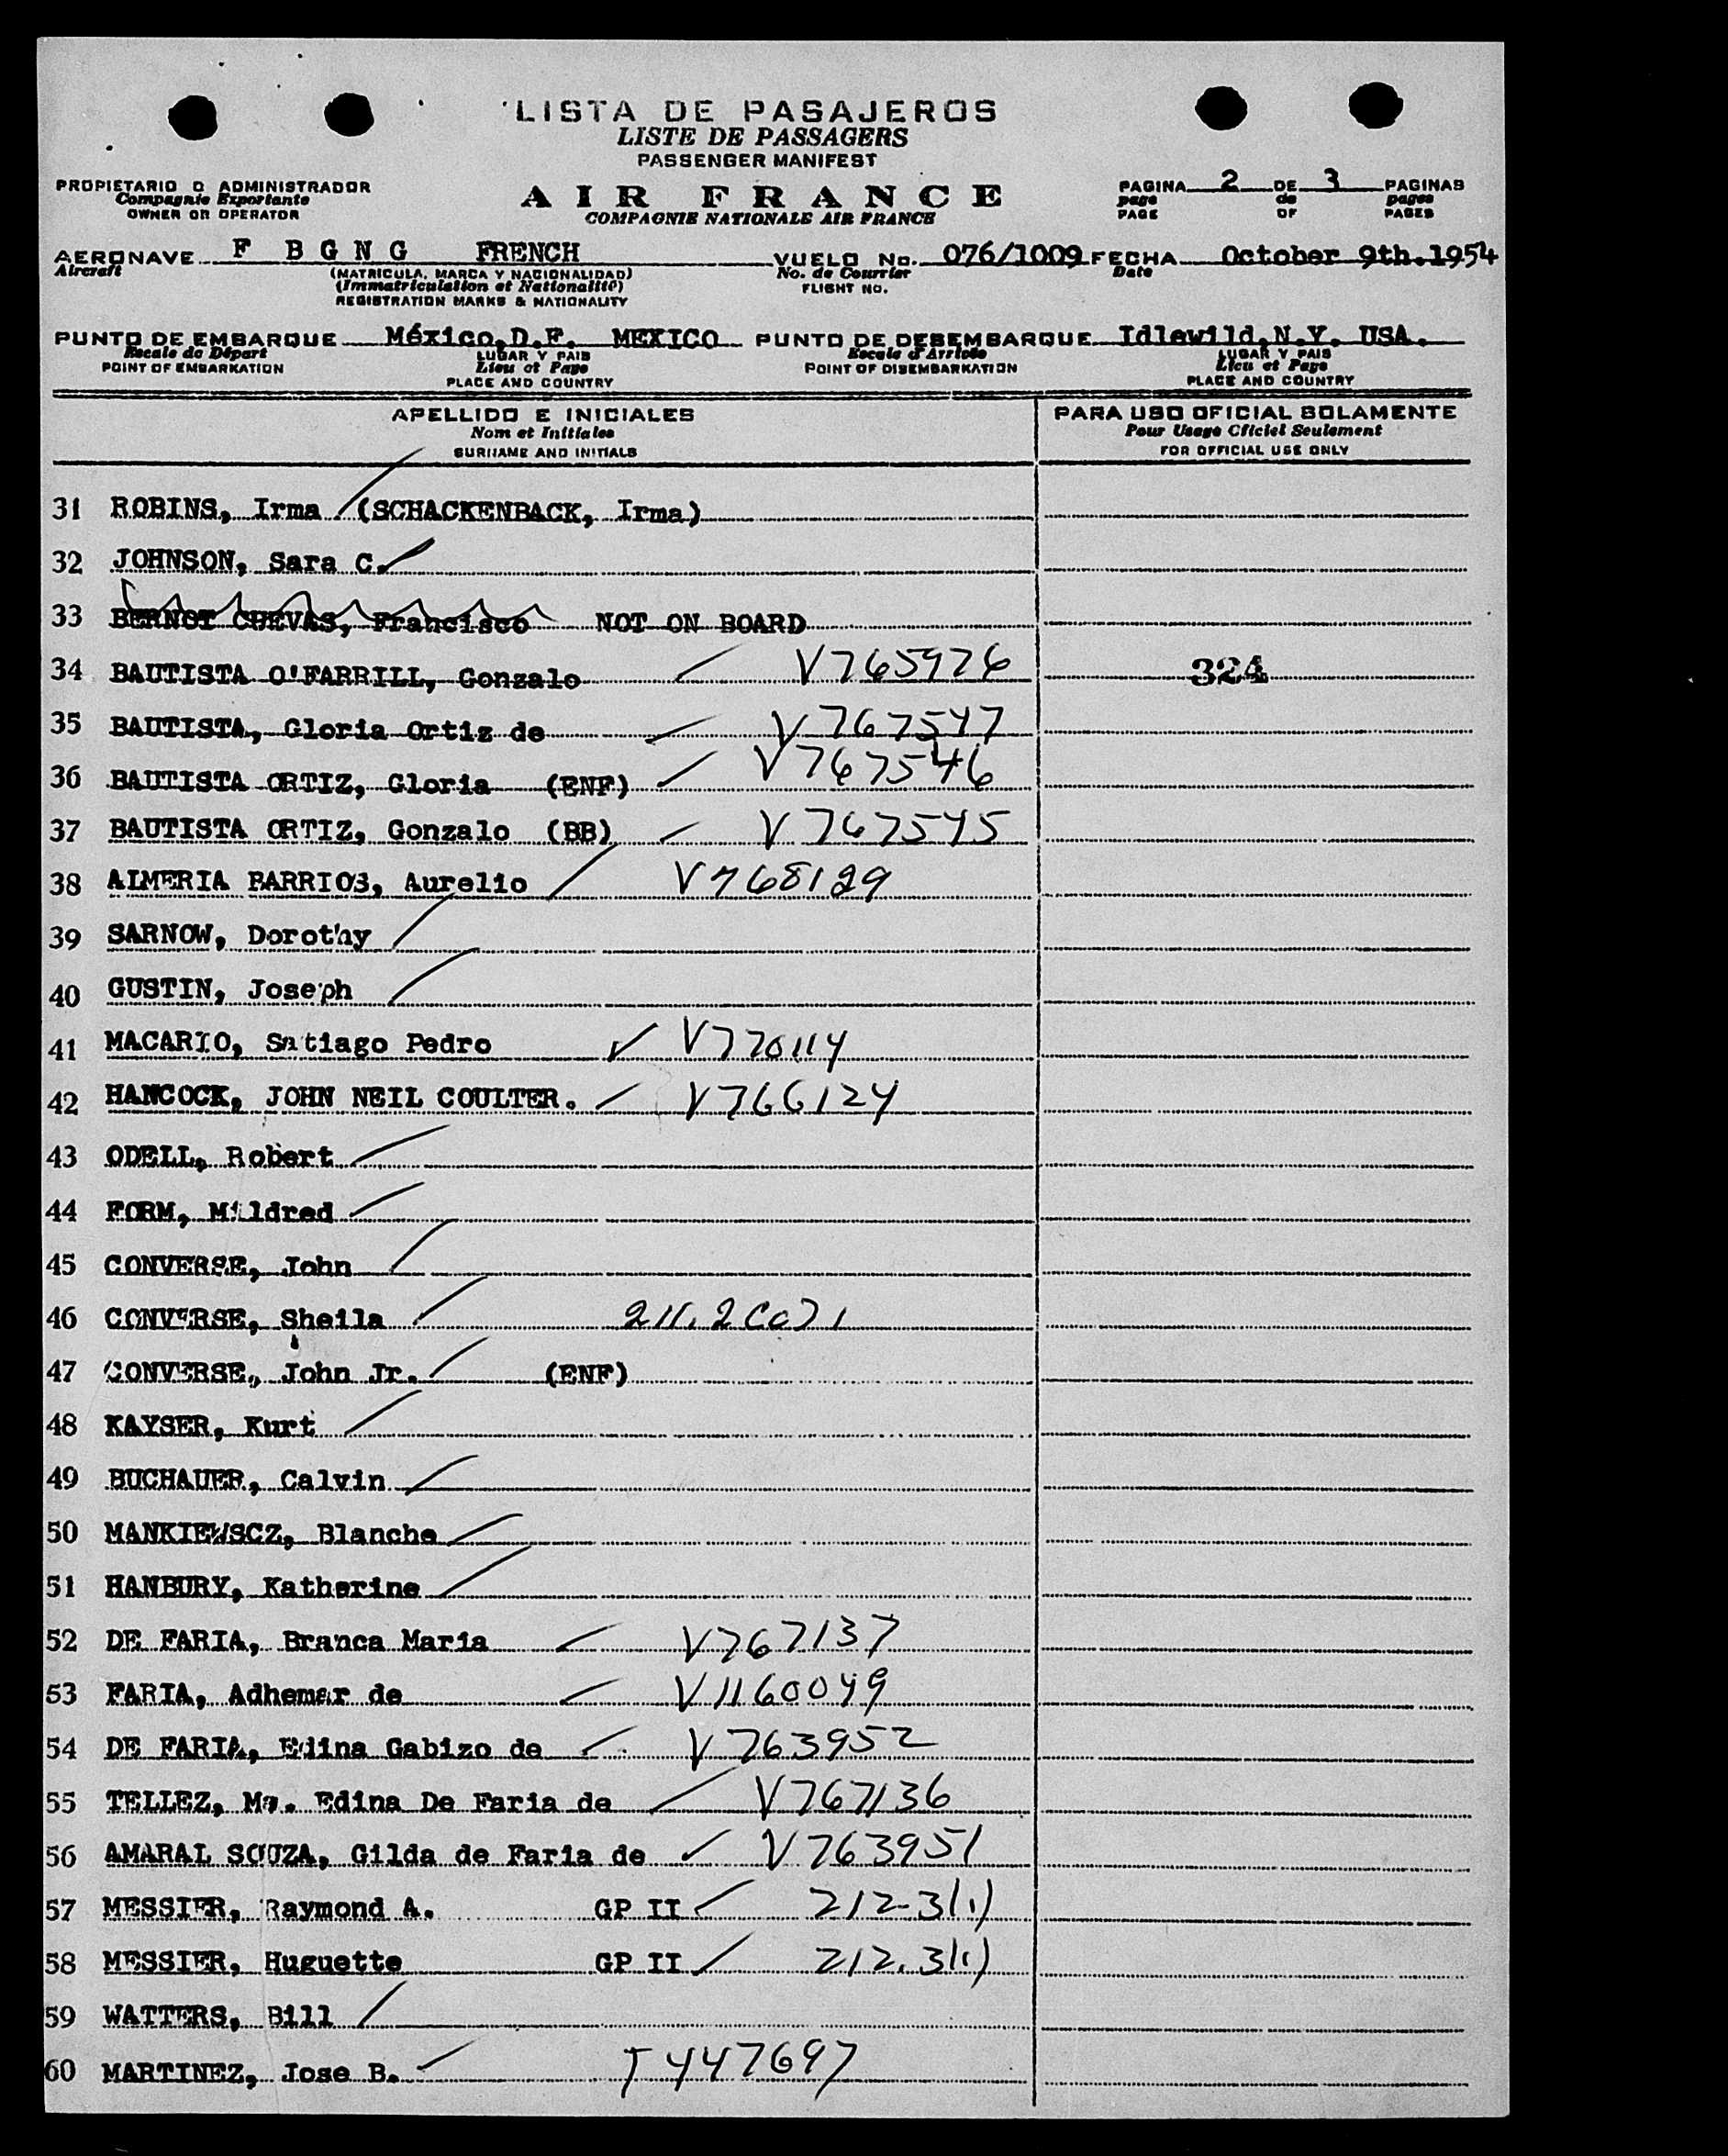 LISTA DE PASAJEROS
LISTE DE PASSAGERS
PASSENGER MANIFEST
PROPIETARIO O ADMINISTRADOR
Compagnie Exportante
OWNER OR OPERATOR
AIR FRANCE
COMPAGNIE NATIONALE AIR FRANCE
PAGINA 2 DE 3 PAGINAS
page de pages
PAGE OF PAGES
AERONAVE F B G N G FRENCH VUELO No. 076/1009 FECHA October 9th.1954
Aircraft (MATRICULA, MARCA Y NACIONALIDAD) No. de Courrier Date
(Immatriculation et Nationalité) FLIGHT NO.
REGISTRATION MARKS & NATIONALITY
PUNTO DE EMBARQUE México,D.F. MEXICO PUNTO DE DESEMBARQUE Idlewild,N.Y. USA.
Escale de Départ LUGAR Y PAIS Escale d'Arrivée LUGAR Y PAIS
POINT OF EMBARKATION Lieu et Pays POINT OF DISEMBARKATION Lieu et Pays
PLACE AND COUNTRY PLACE AND COUNTRY
APELLIDO E INICIALES PARA USO OFICIAL SOLAMENTE
Nom et Initiales Pour Usage Officiel Seulement
SURNAME AND INITIALS FOR OFFICIAL USE ONLY
31 ROBINS, Irma (SCHACKENBACK, Irma)
32 JOHNSON, Sara C.
33 BERNOT CUEVAS, Francisco NOT ON BOARD
34 BAUTISTA O'FARRILL, Gonzalo V765976 324
35 BAUTISTA, Gloria Ortiz de V767547
36 BAUTISTA ORTIZ, Gloria (ENF) V767546
37 BAUTISTA ORTIZ, Gonzalo (BB) V767545
38 ALMERIA BARRIOS, Aurelio V768129
39 SARNOW, Dorothy
40 GUSTIN, Joseph
41 MACARIO, Satiago Pedro V770114
42 HANCOCK, JOHN NEIL COULTER. V766124
43 ODELL, Robert
44 FORM, Mildred
45 CONVERSE, John
46 CONVERSE, Sheila
47 CONVERSE, John Jr. (ENF)
48 KAYSER, Kurt
49 BUCHAUER, Calvin
50 MANKIEWSCZ, Blanche
51 HANBURY, Katherine
52 DE FARIA, Branca Maria V767137
53 FARIA, Adhemar de V1160049
54 DE FARIA, Edina Gabizo de V763952
55 TELLEZ, Ma. Edina De Faria de V767136
56 AMARAL SOUZA, Gilda de Faria de V763951
57 MESSIER, Raymond A. GP II 212-3(1)
58 MESSIER, Huguette GP II 212.3(1)
59 WATTERS, Bill
60 MARTINEZ, Jose B. T447697